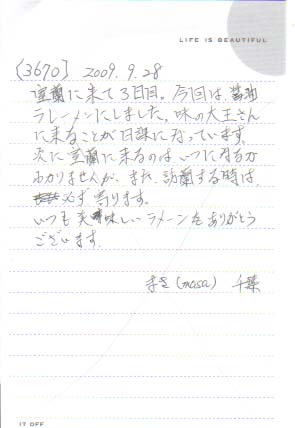 LIFE IS BEAUTIFUL
{3670} 2009. 9. 28
室蘭に来て3日目。今回は、醤油
ラーメンにしました。味の大王さん
に来ることが日課になっています。
次に室蘭に来るのはいつになるか
わかりませんが、また、訪蘭する時は、
必ず寄ります。
いつも美味しいラーメンをありがとう
ございます。
まさ(masa) 千葉